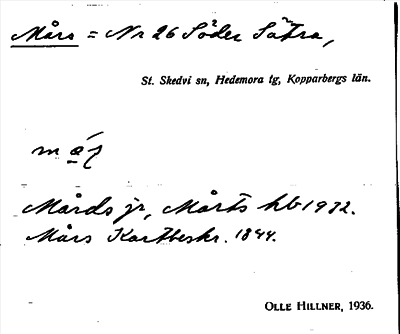 Mårs = Nr 26 Söder Sätra,
St. Skedvi sn, Hedemora tg, Kopparbergs län.
Mårds jr, Mårts hb 1932.
Mårs Kartbeskr. 1844.
OLLE HILLNER, 1936.